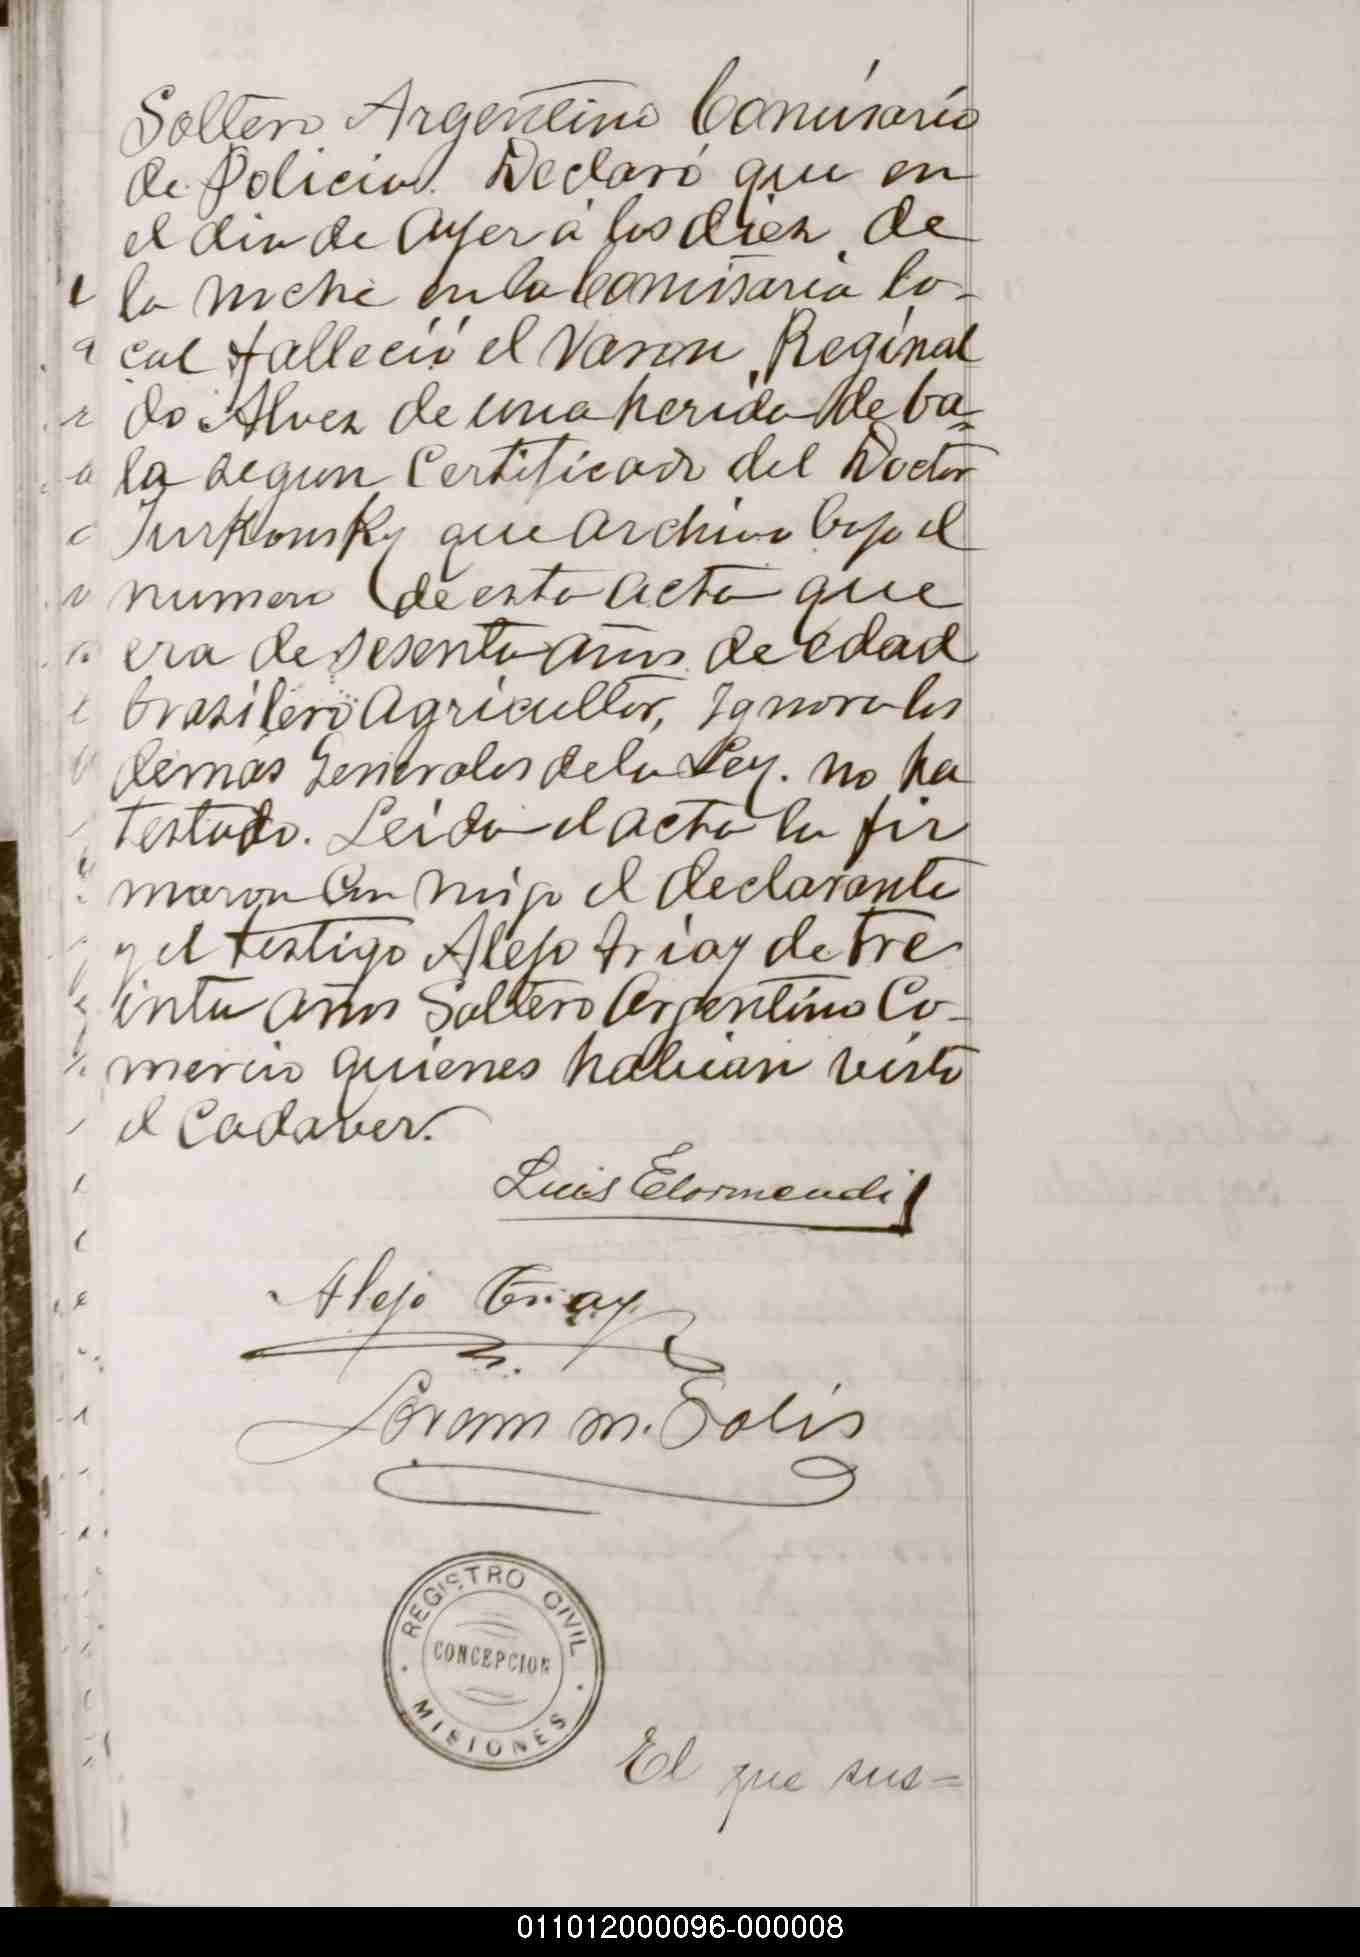 Soltero Argentino Comisario
de Policia. Declaró que en
el dia de ayer á las diez de
la noche en la Comisaria lo-
cal falleció el Varon Reginal
do Alvez de una herida de ba-
la segun Certificado del Doctor
Jurkousky que archivo bajo el
numero de esta acta que
era de sesenta años de edad
brasilero agricultor, Ignora las
demás Generales de la Ley. no ha
testado. Leida el acta la fir
maron con migo el declarante
y el testigo Alejo Triay de tre
inta años Soltero Argentino Co-
mercio quienes habian visto
el Cadaver.
Luis Elormendi
Alejo Triay
m. Solis
REGISTRO CIVIL
CONCEPCION
MISIONES
El que sus=
011012000096-000008